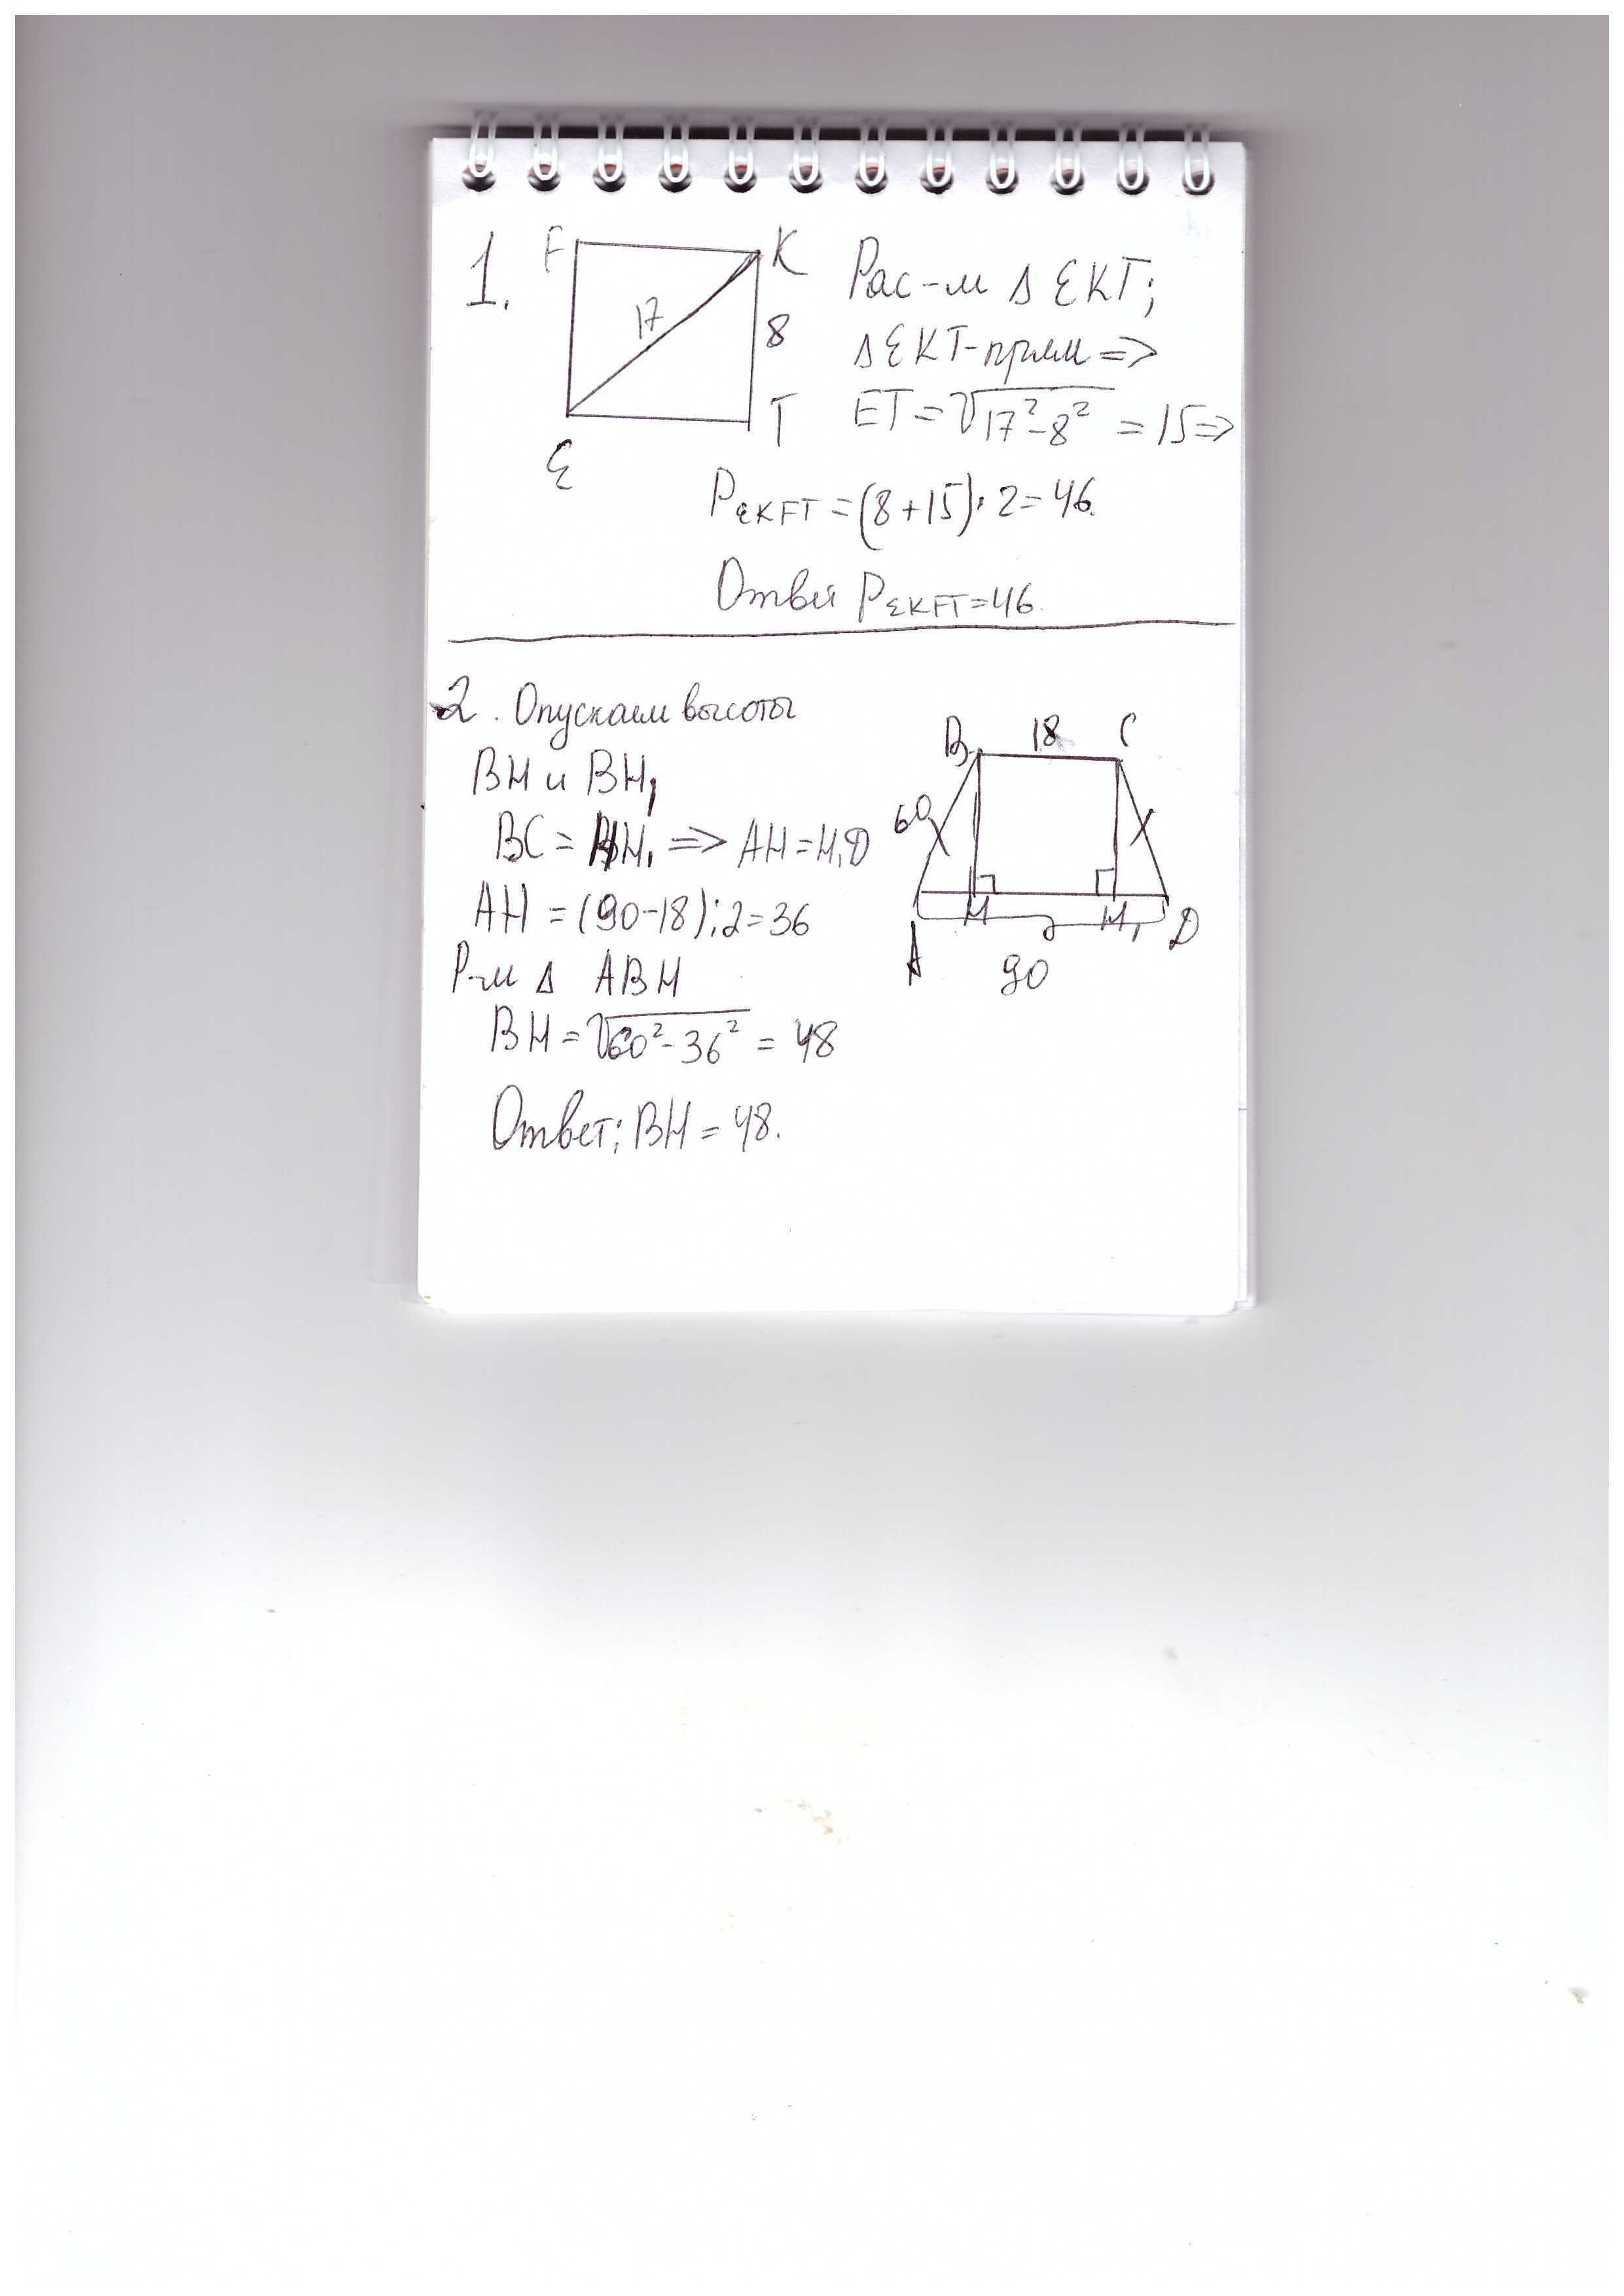 1.
F
K
17
8
E
T
Рас-м Δ EKT;
Δ EKT-прям =>
ET = √17²-8² = 15 =>
P EKFT = (8+15)·2=46.
Ответ P EKFT=46.
2. Опускаем высоты
BH и BH₁
BC = HH₁ => AH = H₁D
AH = (90-18):2=36
Р-м Δ ABH
BH = √60²-36² = 48
Ответ: BH = 48.
B
18
C
60
A
H
H₁
D
90